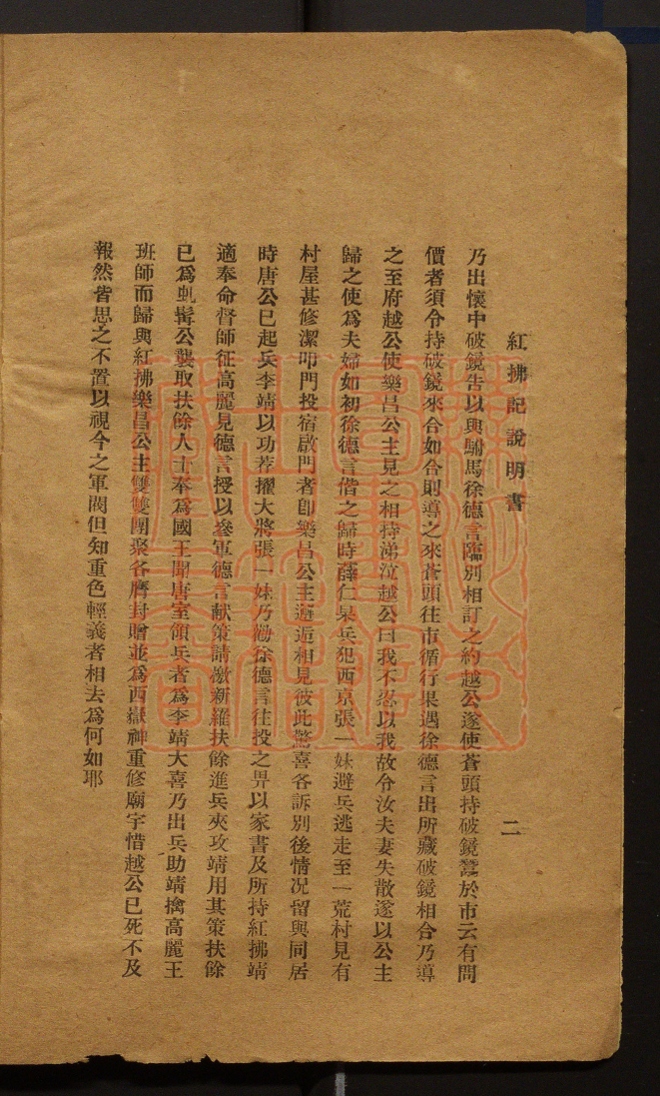 紅拂記說明書
二
乃出懷中破鏡告以與駙馬徐德言臨別相訂之約越公遂使蒼頭持破鏡鬻於市云有問
價者須令持破鏡來合如合則導之來蒼頭往市循行果遇徐德言出所藏破鏡相合乃導
之至府越公使樂昌公主見之相持涕泣越公曰我不忍以我故令汝夫妻失散遂以公主
歸之使爲夫婦如初徐德言偕之歸時薛仁杲兵犯西京張一妹避兵逃走至一荒村見有
村屋甚修潔叩門投宿啟門者卽樂昌公主邂逅相見彼此驚喜各訴別後情況留與同居
時唐公已起兵李靖以功荐擢大將張一妹乃勸徐德言往投之畀以家書及所持紅拂靖
適奉命督師征高麗見德言授以叅軍德言献策請激新羅扶餘進兵夾攻靖用其策扶餘
已爲虬髯公襲取扶餘人士奉爲國王聞唐室領兵者爲李靖大喜乃出兵助靖擒高麗王
班師而歸與紅拂樂昌公主雙雙團聚各膺封贈並爲西嶽神重修廟宇惜越公已死不及
報然皆思之不置以視今之軍閥但知重色輕義者相去爲何如耶